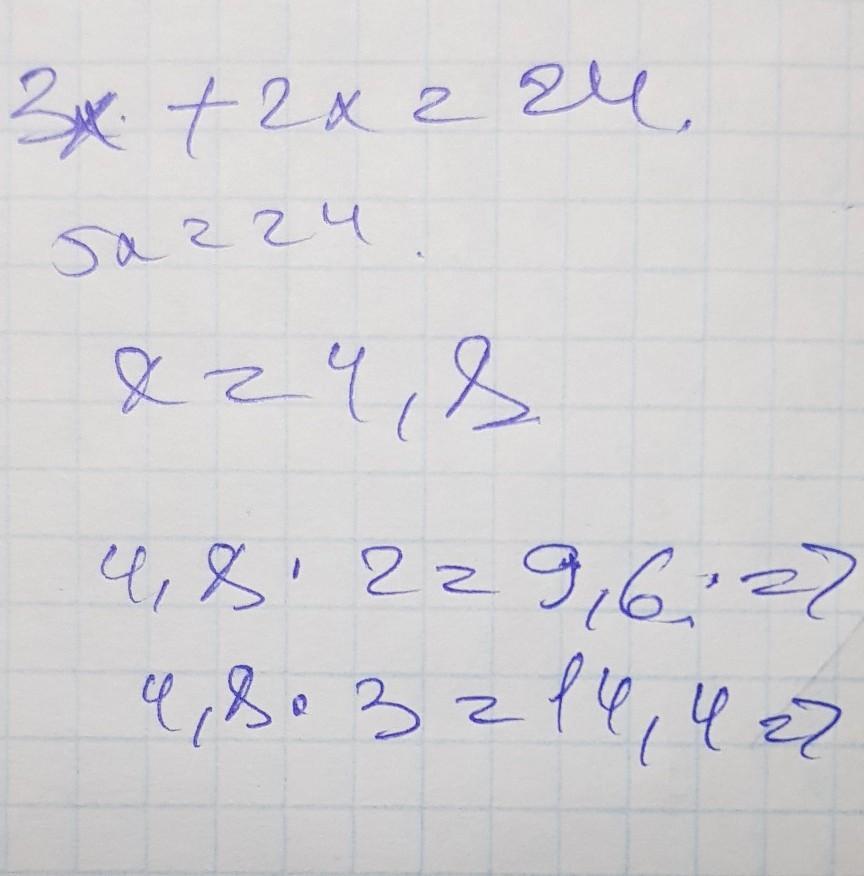 3x + 2x = 24.
5x = 24.
x = 4,8
4,8 · 2 = 9,6; =>
4,8 · 3 = 14,4 =>